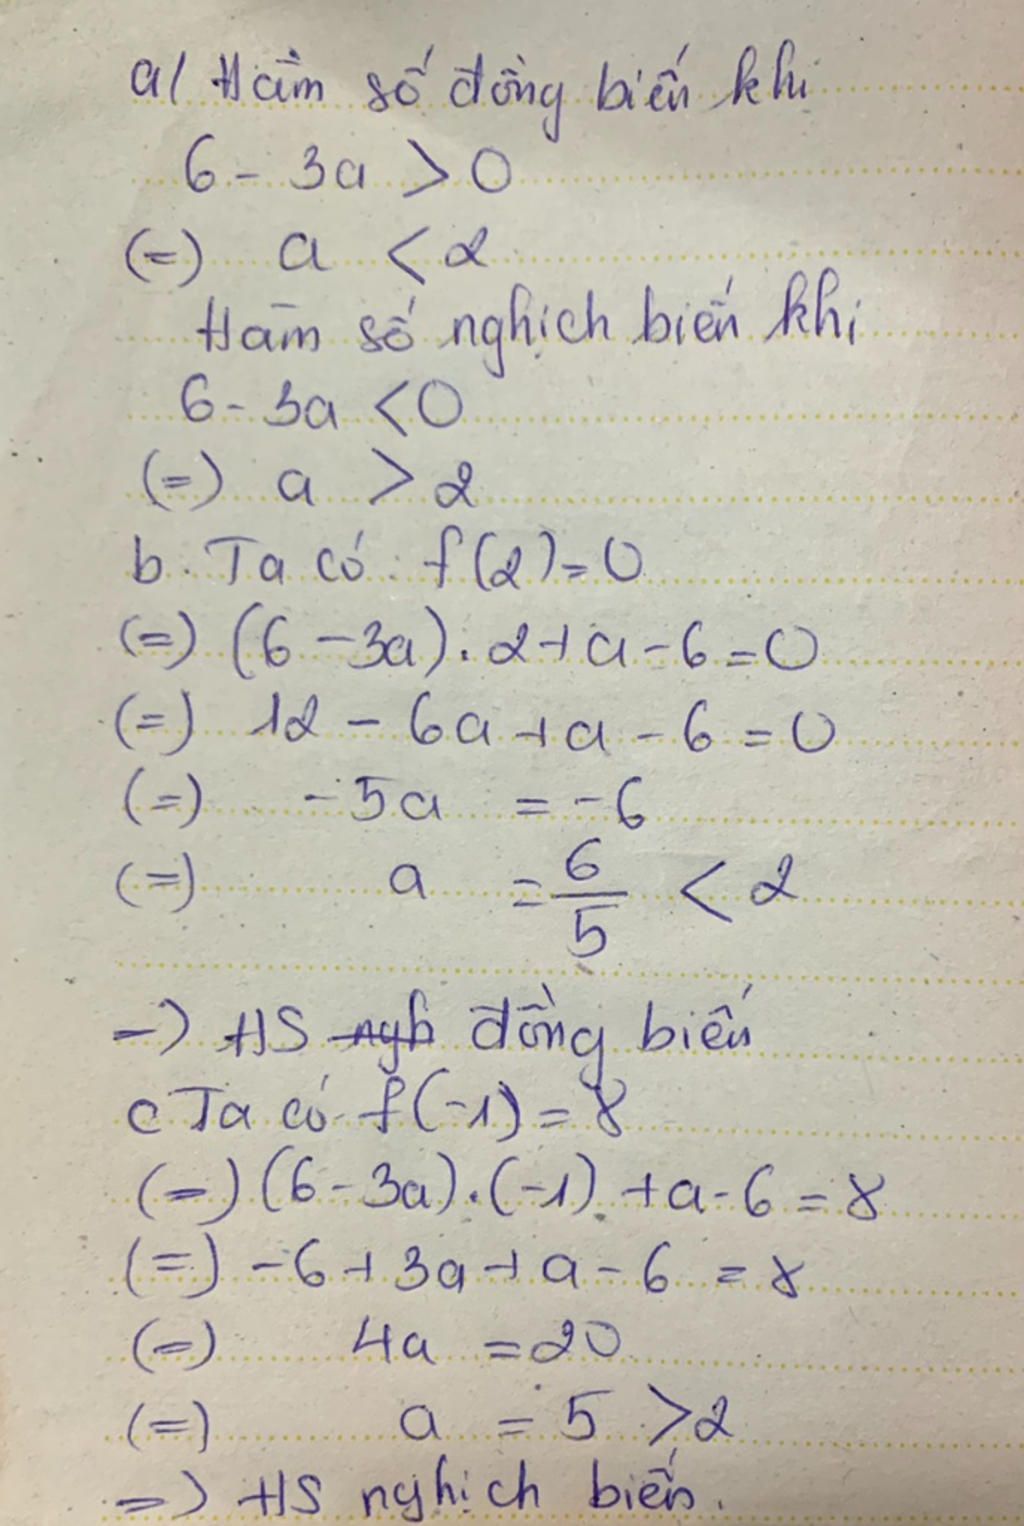 a/ Hàm số đồng biến khi
6 - 3a > 0
(=) a < 2
Hàm số nghịch biến khi
6 - 3a < 0
(=) a > 2
b. Ta có: f(2) = 0
(=) (6 - 3a). 2 + a - 6 = 0
(=) 12 - 6a + a - 6 = 0
(=) - 5a = -6
(=) a = 6/5 < 2
=) HS ngh đồng biến
c Ta có f(-1) = 8
(=) (6 - 3a).(-1) + a - 6 = 8
(=) -6 + 3a + a - 6 = 8
(=) 4a = 20
(=) a = 5 > 2
=) HS nghịch biến.